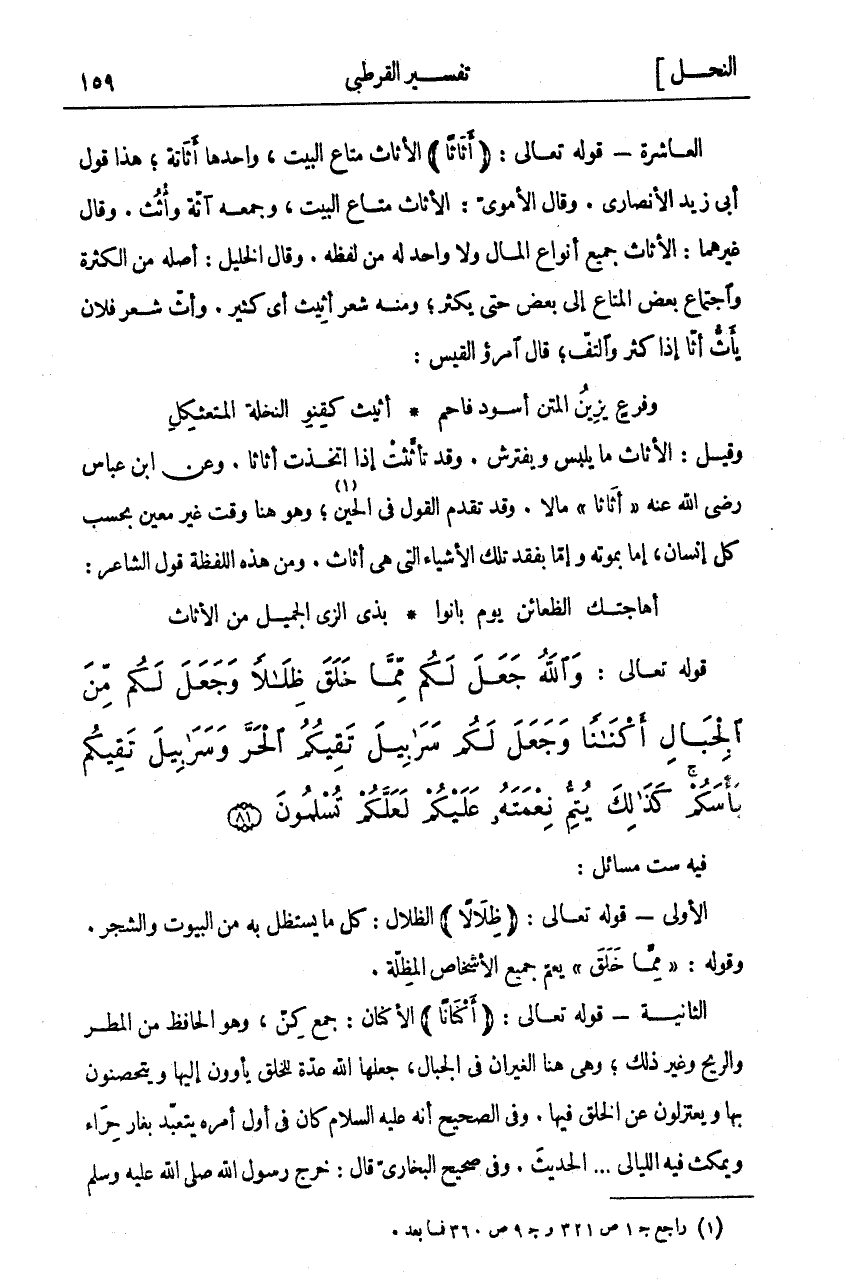 النحل] تفسير القرطبى ١٥٩
العاشرة – قوله تعالى : ﴿أَثَاثًا﴾ الأثاث متاع البيت ، واحدها أَثَاثة ؛ هذا قول
أبى زيد الأنصارى . وقال الأموىّ : الأثاث متاع البيت ، وجمعه آثّة وأُثُث . وقال
غيرهما : الأثاث جميع أنواع المال ولا واحد له من لفظه . وقال الخليل : أصله من الكثرة
وٱجتماع بعض المتاع إلى بعض حتى يكثر ؛ ومنه شعر أثيث أى كثير . وأثّ شعر فلان
يأَثُّ أثًا إذا كثر وٱلتفّ ؛ قال ٱمرؤ القيس :
وفرعٍ يزِينُ المتن أسود فاحم * أثيث كقِنوِ النخلة المتعثكِلِ
وقيل : الأثاث ما يلبس ويفترش . وقد تأثّثتْ إذا اتخذت أثاثا . وعن ابن عباس
رضى الله عنه « أَثاثا » مالا . وقد تقدم القول فى الحين (١) ؛ وهو هنا وقت غير معين بحسب
كل إنسان ، إما بموته وإمّا بفقد تلك الأشياء التى هى أثاث . ومن هذه اللفظة قول الشاعر :
أهاجتك الظعائن يوم بانوا * بذى الزى الجميل من الأثاث
قوله تعالى : وَٱللَّهُ جَعَلَ لَكُم مِّمَّا خَلَقَ ظِلَـٰلًا وَجَعَلَ لَكُم مِّنَ
ٱلْجِبَالِ أَكْنَـٰنًا وَجَعَلَ لَكُم سَرَٰبِيلَ تَقِيكُمُ ٱلْحَرَّ وَسَرَٰبِيلَ تَقِيكُم
بَأْسَكُمْ ۚ كَذَٰلِكَ يُتِمُّ نِعْمَتَهُۥ عَلَيْكُمْ لَعَلَّكُمْ تُسْلِمُونَ ﴿٨١﴾
فيه ست مسائل :
الأولى – قوله تعالى : ﴿ظِلَالًا﴾ الظلال : كل ما يستظل به من البيوت والشجر .
وقوله : « مِمَّا خَلَقَ » يعم جميع الأشخاص المظِلّة .
الثانية – قوله تعالى : ﴿أَكْنَانًا﴾ الأكنان : جمع كِنّ ، وهو الحافظ من المطر
والريح وغير ذلك ؛ وهى هنا الغيران فى الجبال ، جعلها الله عدّة للخلق يأوون إليها ويتحصنون
بها ويعتزلون عن الخلق فيها . وفى الصحيح أنه عليه السلام كان فى أول أمره يتعبّد بغار حِرَاء
ويمكث فيه الليالى ... الحديثَ . وفى صحيح البخارىّ قال : خرج رسول الله صلى الله عليه وسلم
(١) راجع ج ١ ص ٣٢١ و ج ٩ ص ٣٦٠ فما بعد .